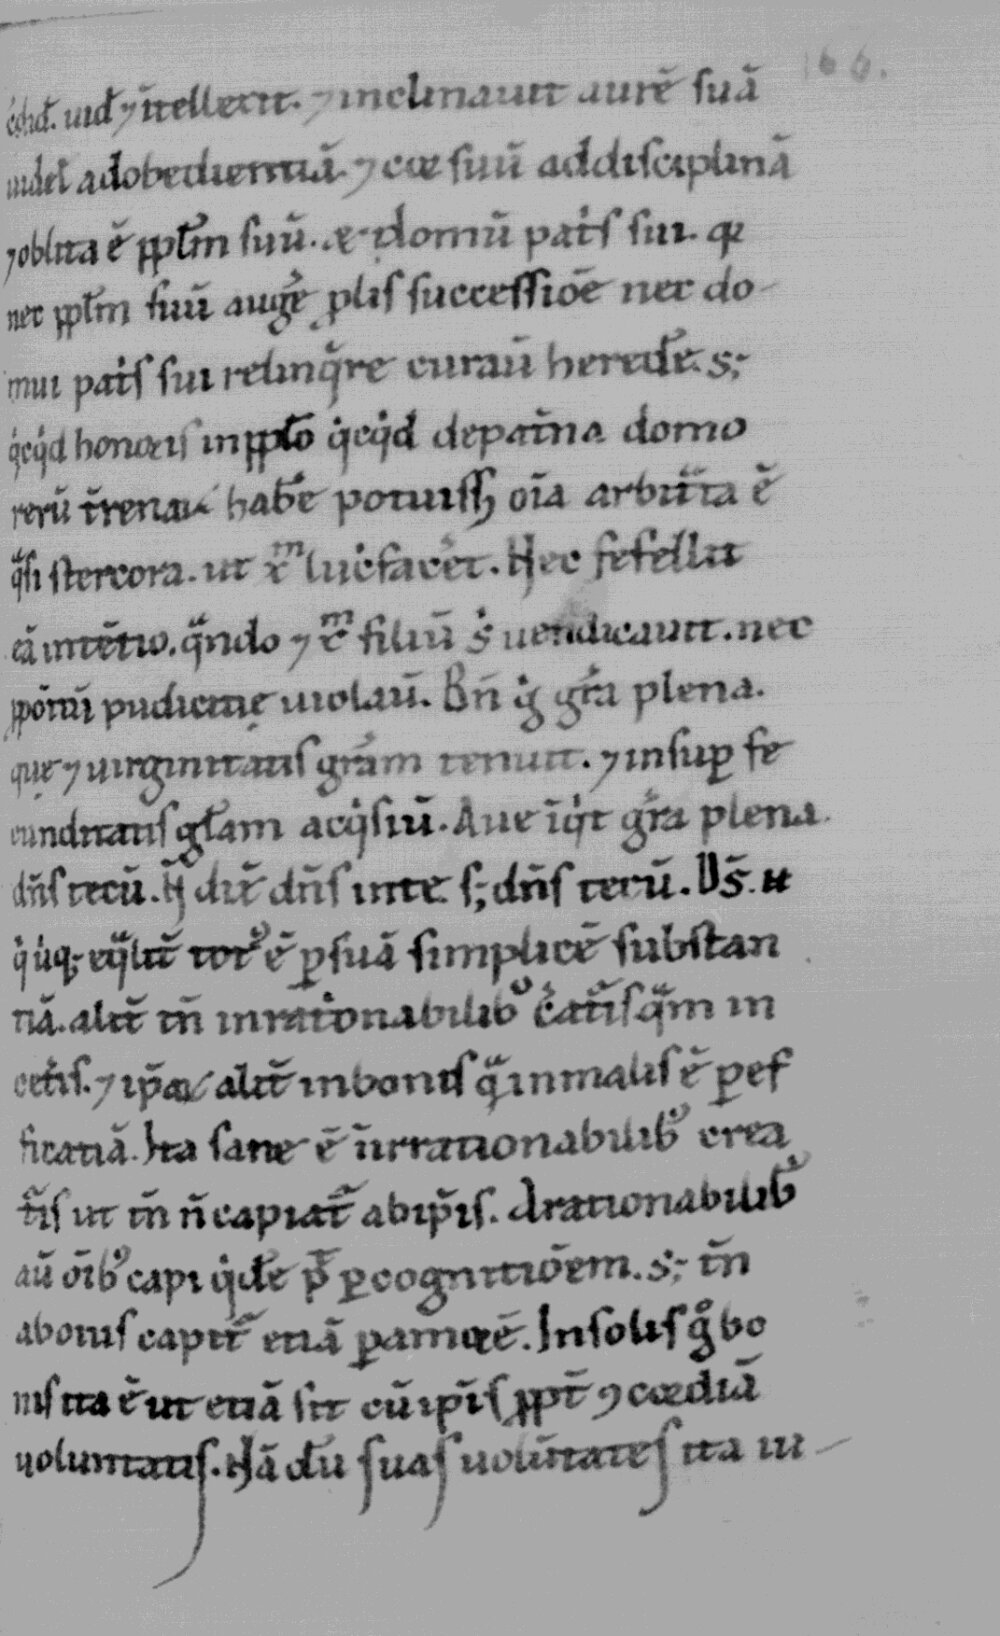 166.
ć̣did̄. uid̄ ⁊ ītellexit. ⁊ inclinauit aurē suā
uidel̄ adobedientiā. ⁊ cor suū addisciplinā
⁊oblita ē pp̄lm suū. & domū pat̄s sui. q̄
nec pp̄lm suū augēe p̄lis successiōe nec do-
mui pat̄s sui relinq̄re curau̅ herede̅. s;
q̇cq̇d honoris inpp̄lo q̇cq̇d depat̄na domo
rerū t̄renar̄ habe̅ potuiss; oīa arbit̄ta ē
q̄si stercora. ut xͫ luc̓facēt. Hec fefellit
eā intētio. q̄ndo ⁊ xͫ filiū s̓ uendicauit. nec
p̄positū pudicitię uiolau̅. Bn̄ g̓ gr̄a plena.
quę ⁊ uirginitatis gr̄am tenuit. ⁊ insup̱ fe
cunditatis gl̄am acq̇siu̅. Aue īq̇t gr̄a plena.
dn̄s tecū. N̄ dix̄ dn̄s inte. s; dn̄s tecū. D̄s. n̄
q̇ ubiq; eq̄lit̄ totꝰ ē p̱suā simplicē substan
tiā. alit̄ tn̄ inrat̓onabilibꝰ c̓atu̅s q̄m in
cet̄is. ⁊ ip̄ar̄ alit̄ inbonis q̄ inmalis ē p̱ef
ficatiā. Ita sane ē īrrationabilibꝰ crea
t̄is ut tn̄ n̄ capiat̄ abip̄is. Arationabilibꝰ
au̅ oīb; capi q̇de̅ p̄t p̱cognitiōem. s; tn̄
abonis capit̄ etiā p̱amorē. Insolis g̊ bo
nis ita ē ut etiā sit cū ip̄is pp̄t ꝯcordiā
uoluntatis. Nā du̅ suas uolu̅tates ita iu-